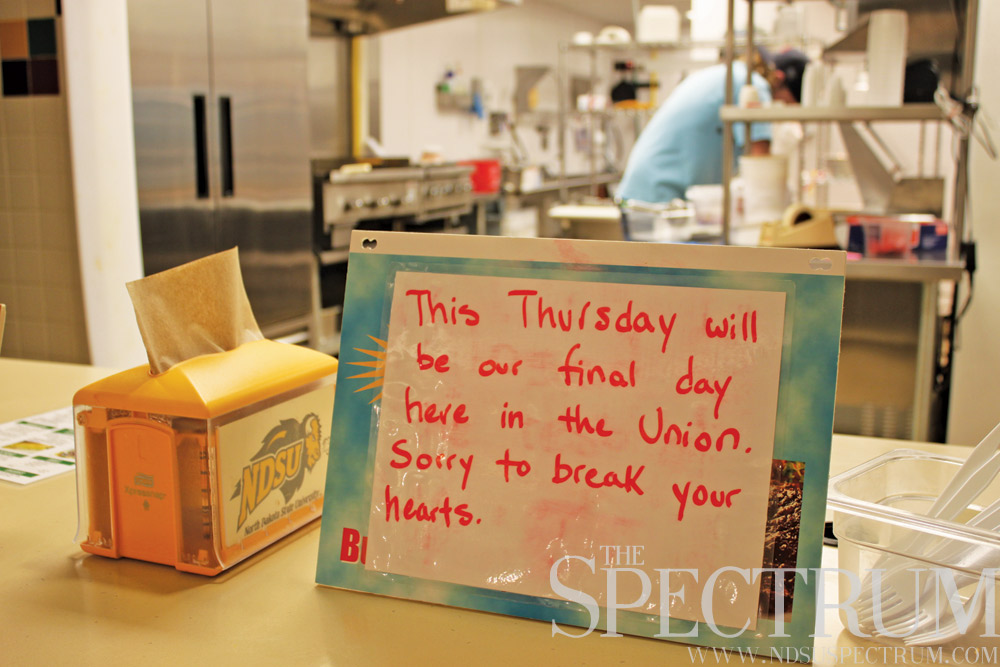 This Thursday will
be our final day
here in the Union.
Sorry to break your
hearts.
NDSU
North Dakota State University
THE
SPECTRUM
WWW.NDSUSPECTRUM.COM